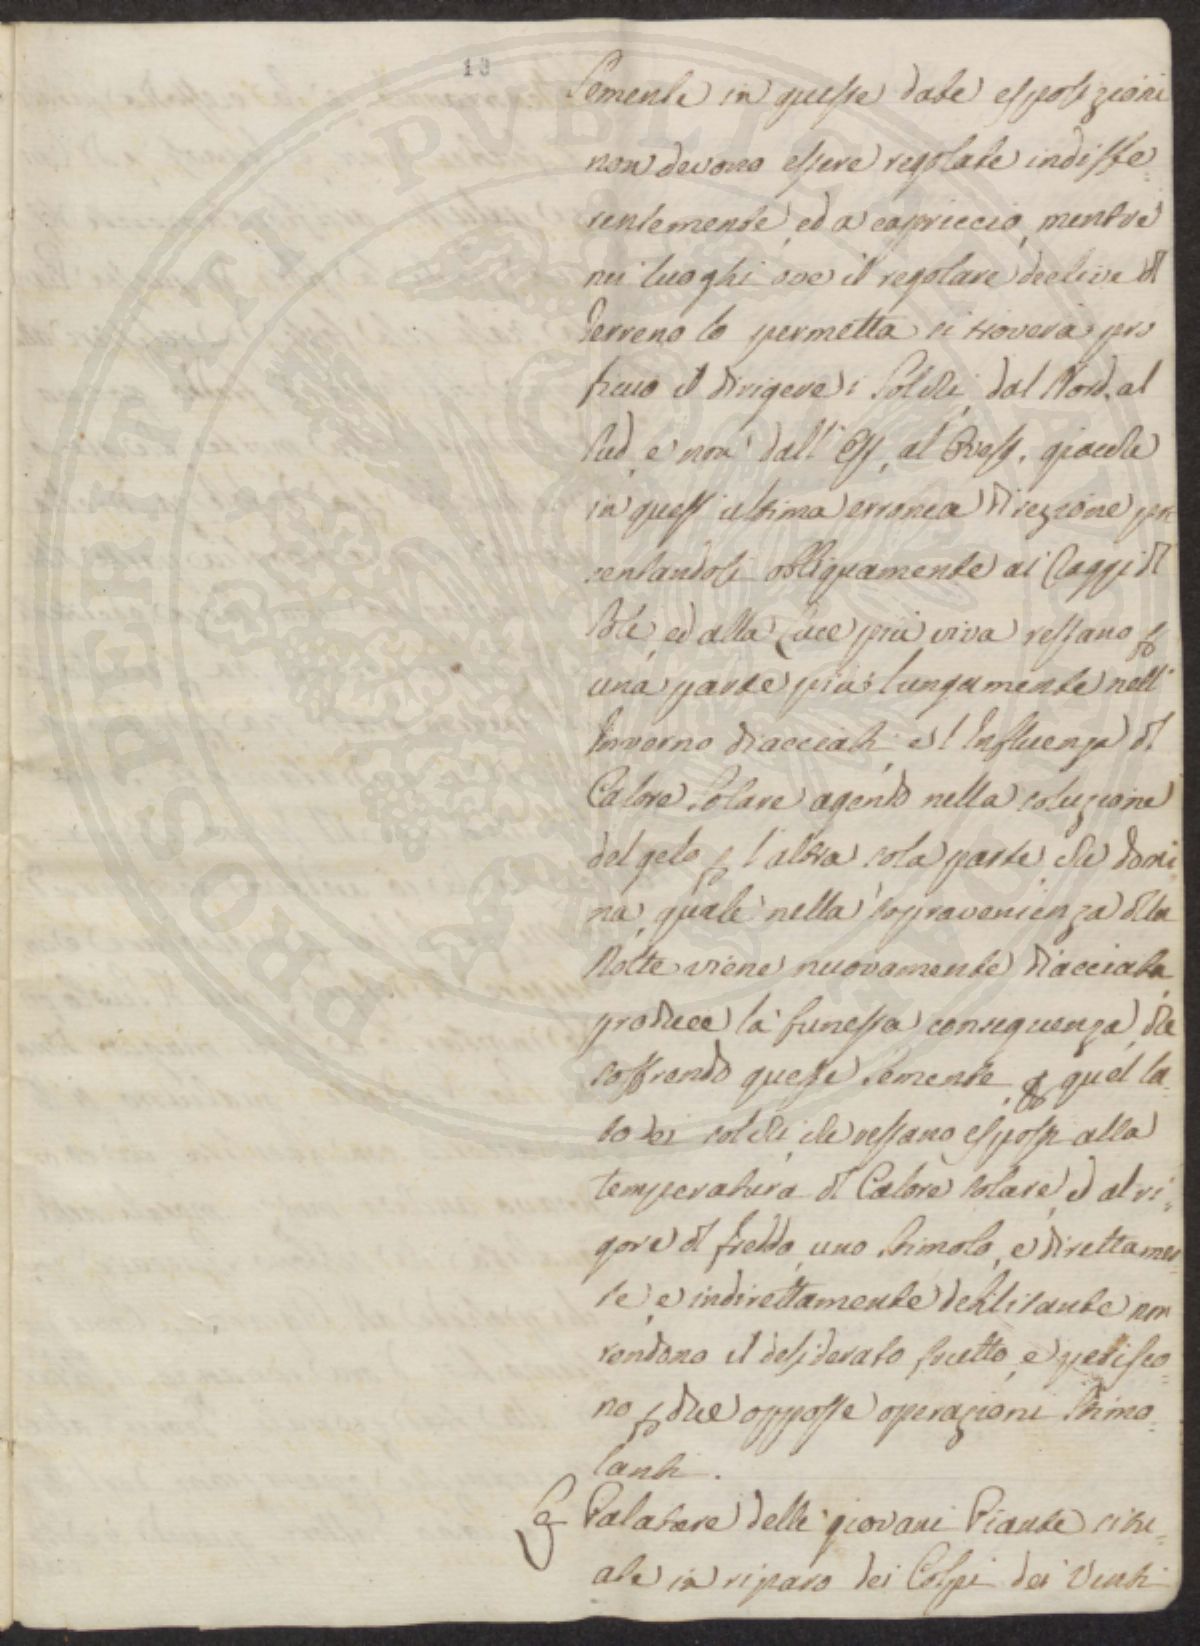 10
Semente in queste date esposizioni
non devono essere regolate indiffe-
rentemente, ed a capriccio, mentre
nei luoghi ove il regolare declive di
terreno lo permetta si troverà pro
ficuo il dirigere i Solchi, dal Nord, al
Sud, e non dall' Est, al Ovest, giacchè
in quest' ultima erronea direzione pre
sentandosi obliquamente ai Raggi di
Sole, ed alla Luce più viva restano p
una parte più lungamente nell'
Inverno diacciati, e l'Influenza di
Calore Solare agendo nella soluzione
del gelo p l'altra sola parte che domi-
na, quale nella sopravenienza della
Notte viene nuovamente diacciata,
produce la funesta conseguenza, che
soffrendo queste Semente p quel la-
to dei solchi, che restano esposti alla
temperatura di Calore solare, ed al ri-
gore di freddo, uno Stimolo, e direttamen-
te, e indirettamente debilitante non
rendono il desiderato frutto, e perisco-
no p due opposte operazioni Stimo-
lanti.
Le Palature delle giovani Piante situ-
ate in riparo dei Colpi dei Venti
PROSPERITATI PVBLICAE